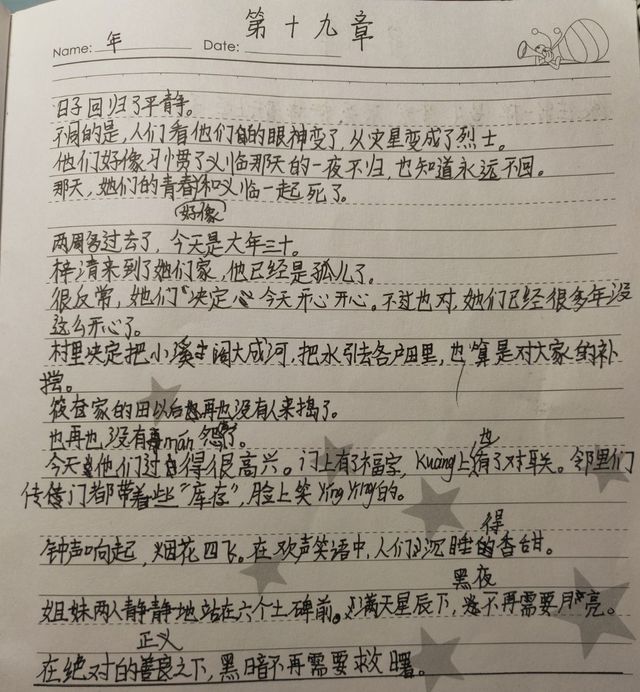 第十九章
Name: 年 Date:
日子回归了平静。
不同的是，人们看他们的眼神变了，从灾星变成了烈士。
他们好像习惯了义临那天的一夜不归，也知道永远不回。
那天，她们的青春好像和义临一起死了。
两周多过去了，今天是大年三十。
梓清来到了她们家，他已经是孤儿了。
很反常，她们决定今天开心开心。不过也对，她们已经很多年没
这么开心了。
村里决定把小溪扩大成河，把水引去各户田里，也算是对大家的补
偿。
家的田以后再也没有人来捣了。
也再也没有man怨了。
今天他们过得很高兴。门上有了福字，kuàng上也有了对联。邻里们
传门都带着些“库存”，脸上笑yíng yíng的。
钟声响起，烟花四飞。在欢声笑语中，人们沉睡得香甜。
姐妹两人静静地站在六个土碑前。满天星辰下，黑夜不再需要月亮。
在绝对的正义之下，黑暗不再需要救曙。